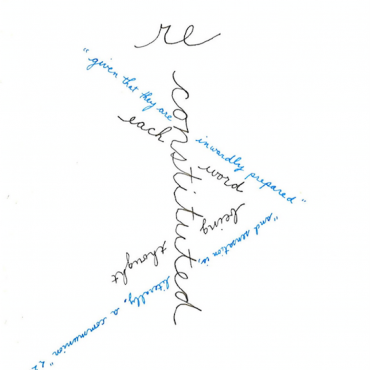 re
constituted
"given that they are
inwardly prepared"
each
word
being
thought
"and sensation is,
literally, a communion"